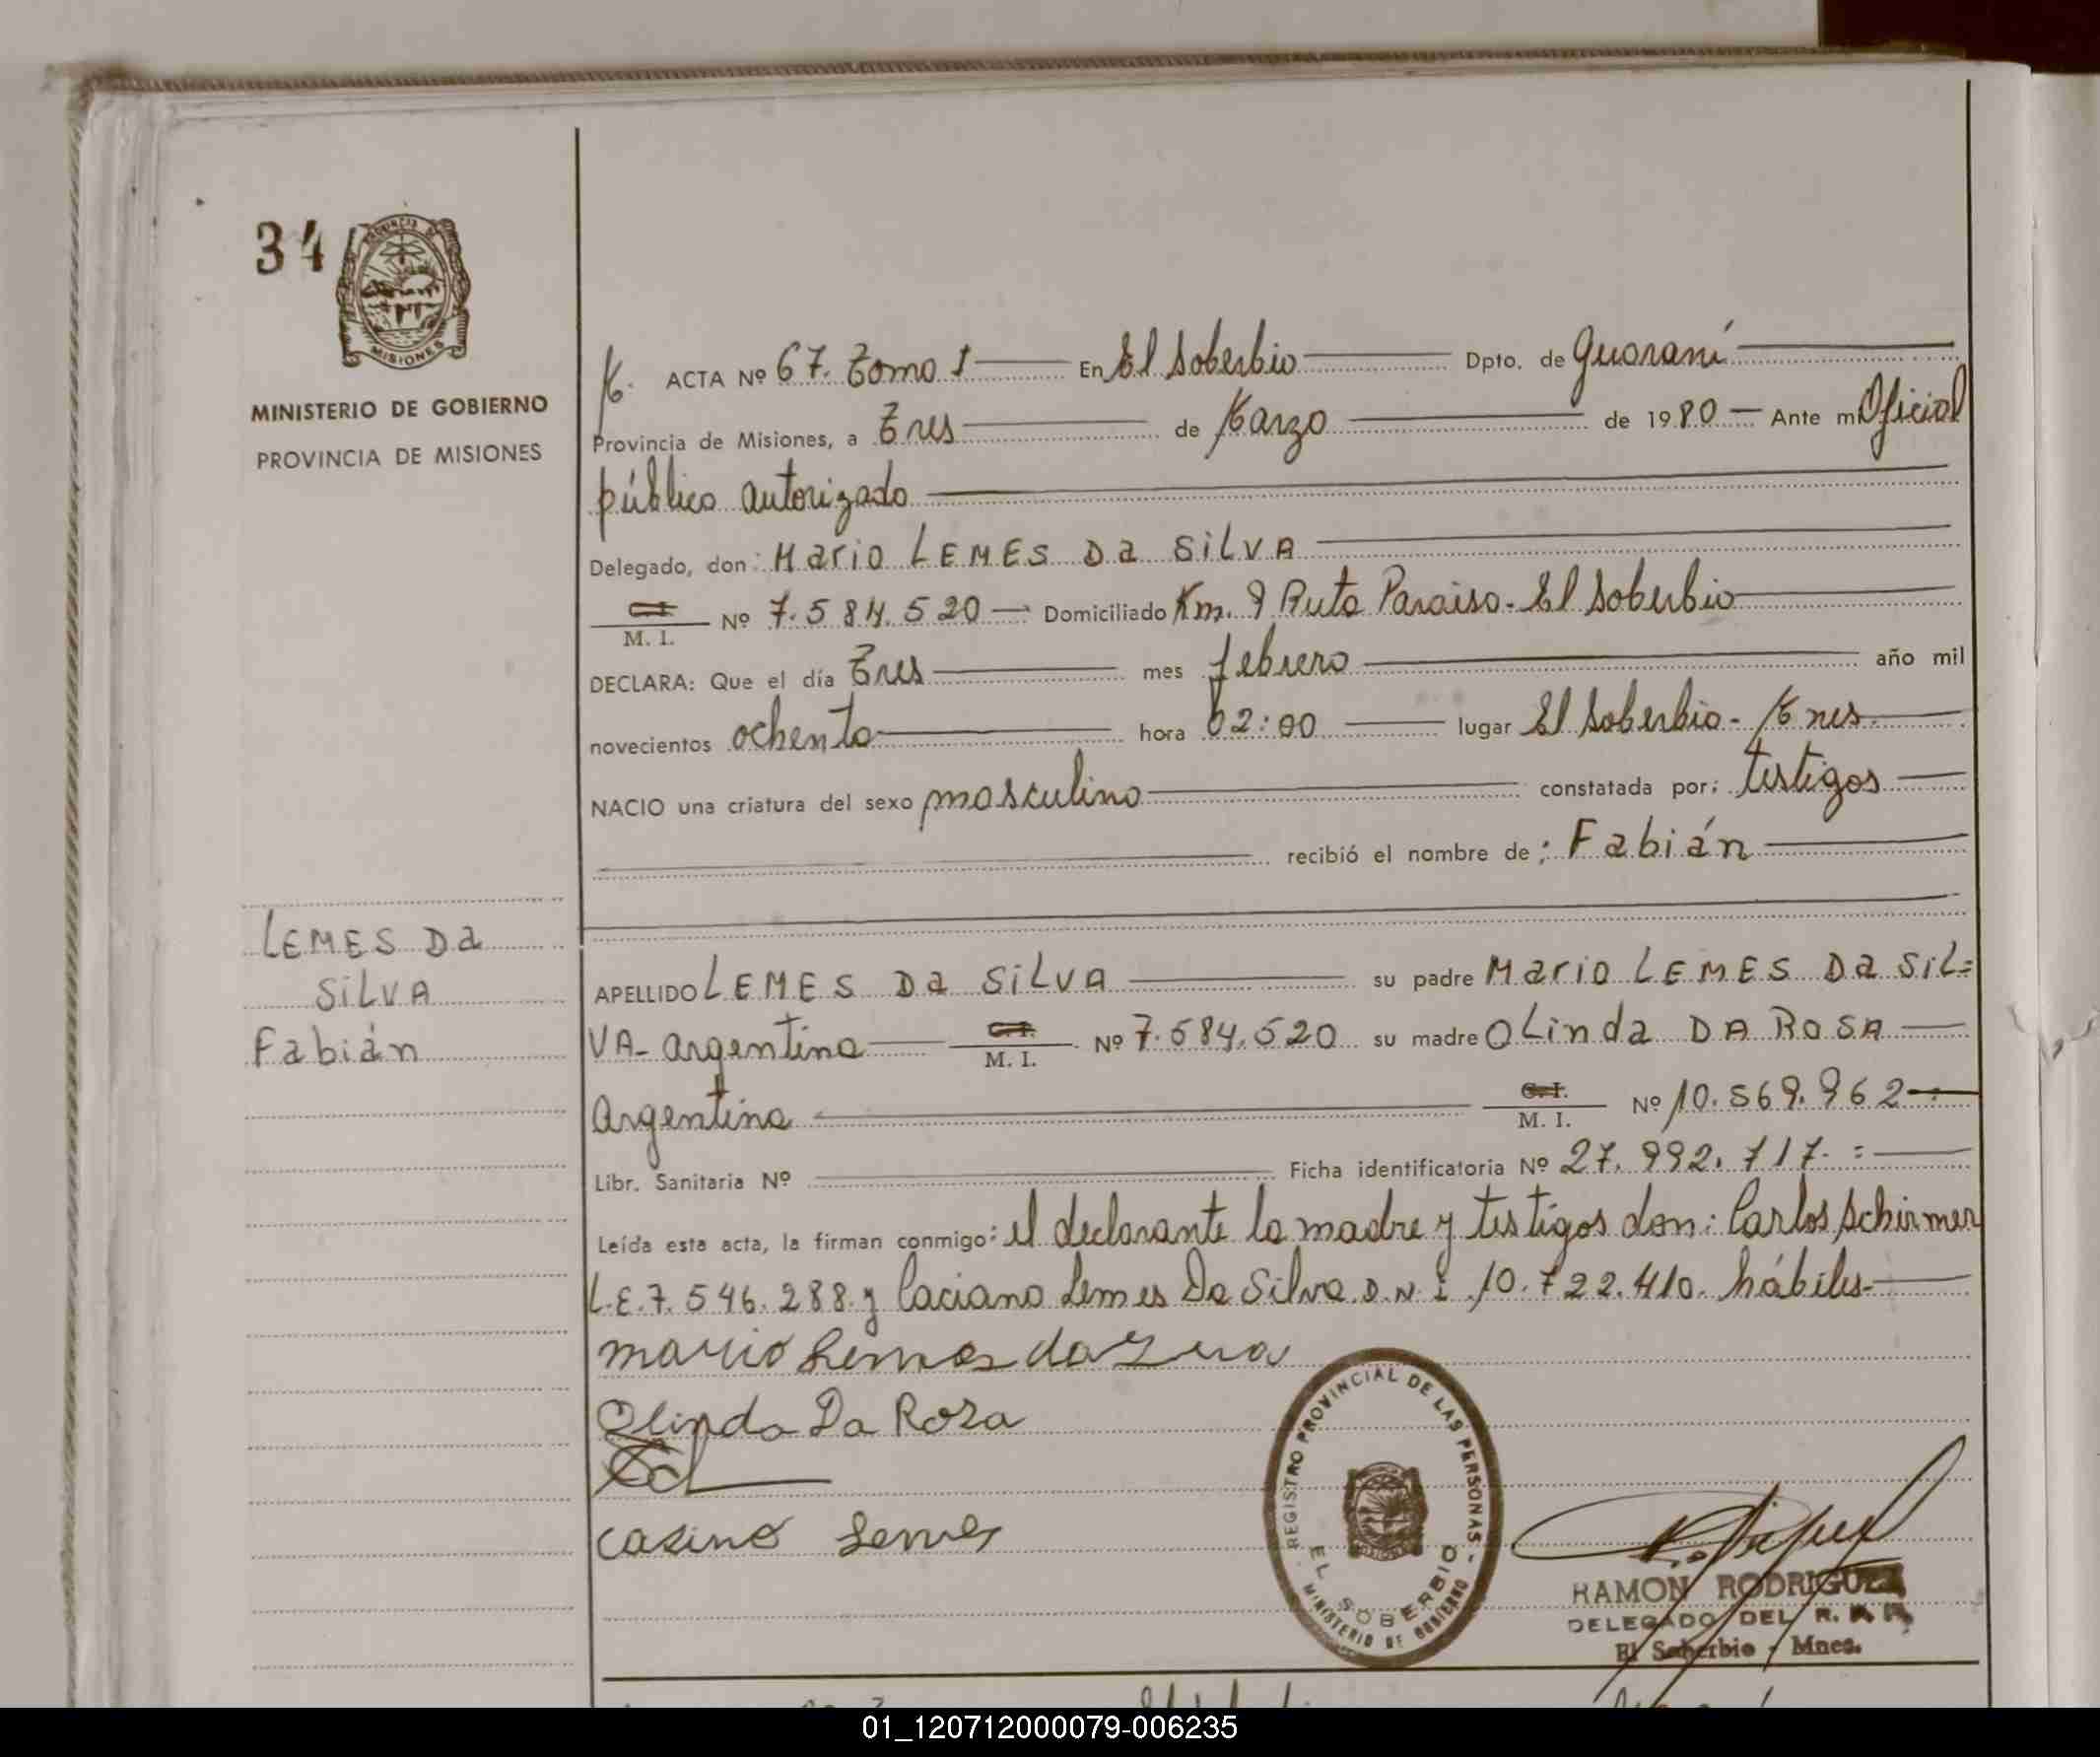 34
PROVINCIA DE
MISIONES
MINISTERIO DE GOBIERNO
PROVINCIA DE MISIONES
LEMES Da
SiLVA
Fabián
M. ACTA Nº 67. Tomo I En El Soberbio Dpto. de Guaraní
Provincia de Misiones, a Tres de Marzo de 1980 Ante mi Oficial
público autorizado
Delegado, don: Mario LEMES Da SiLVA
C.I. M. I. Nº 7.584.520 Domiciliado Km. 9 Ruta Paraiso - El Soberbio
DECLARA: Que el día Tres mes febrero año mil
novecientos ochenta hora 02:00 lugar El Soberbio - Mnes.
NACIO una criatura del sexo masculino constatada por: testigos
recibió el nombre de: Fabián
APELLIDO LEMES Da SiLVA su padre Mario LEMES Da SiL=
VA- argentina C.I. M. I. Nº 7.584.520 su madre OLinda DA ROSA
argentina C.I. M. I. Nº 10.569.962
Libr. Sanitaria Nº Ficha identificatoria Nº 27.992.717.=
Leída esta acta, la firman conmigo: el declarante la madre y testigos don: Carlos Schirmer
L.E. 7.546.288. y Caciano Lemes Da Silva D.N.I. 10.722.410. hábiles-
mario Lemes da
Olinda Da Rosa
Lemes
REGISTRO PROVINCIAL DE LAS PERSONAS
EL SOBERBIO
MINISTERIO DE GOBIERNO
RAMON RODRIGUEZ
DELEGADO DEL R.
El Soberbio - Mnes.
01_120712000079-006235